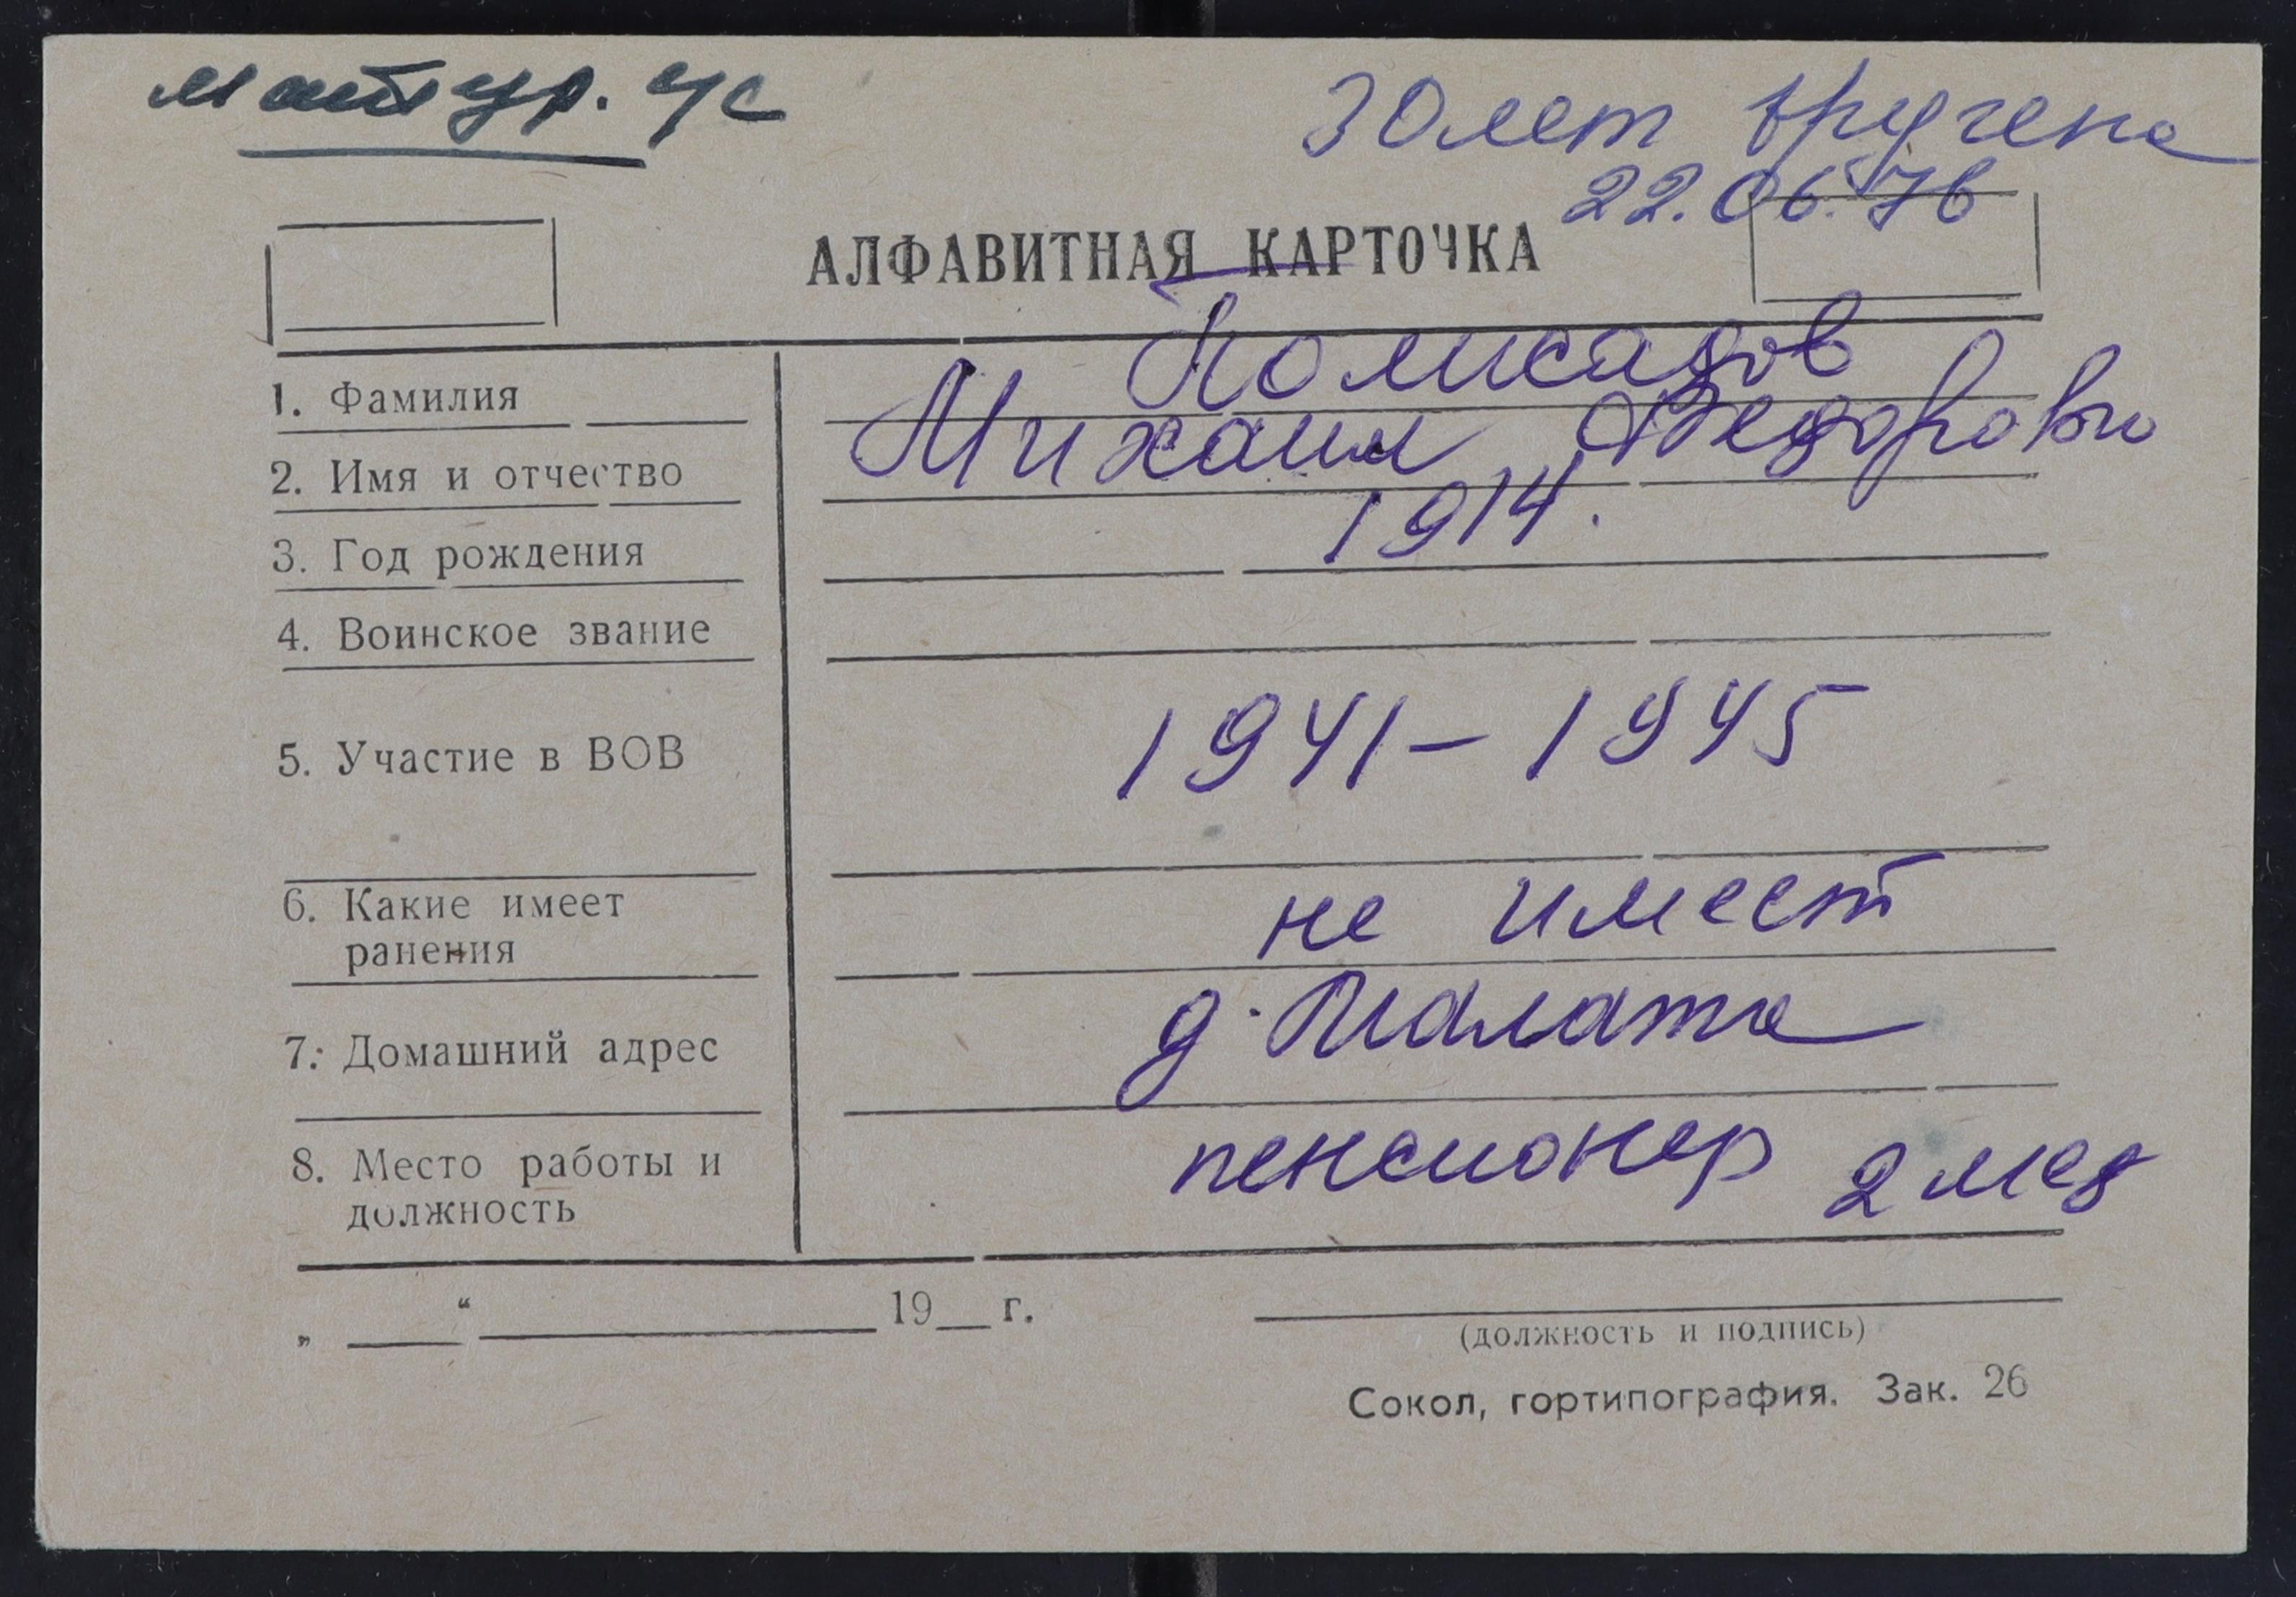 матур. ус
30 лет вручена
22.06.76
АЛФАВИТНАЯ КАРТОЧКА
1. Фамилия
2. Имя и отчество Михаил Федорович
3. Год рождения 1914.
4. Воинское звание
5. Участие в ВОВ 1941-1945
6. Какие имеет не имеет
ранения
7. Домашний адрес д.
8. Место работы и пенсионер 2 мед
должность
„ “ 19 г.
(должность и подпись)
Сокол, гортипография. Зак. 26